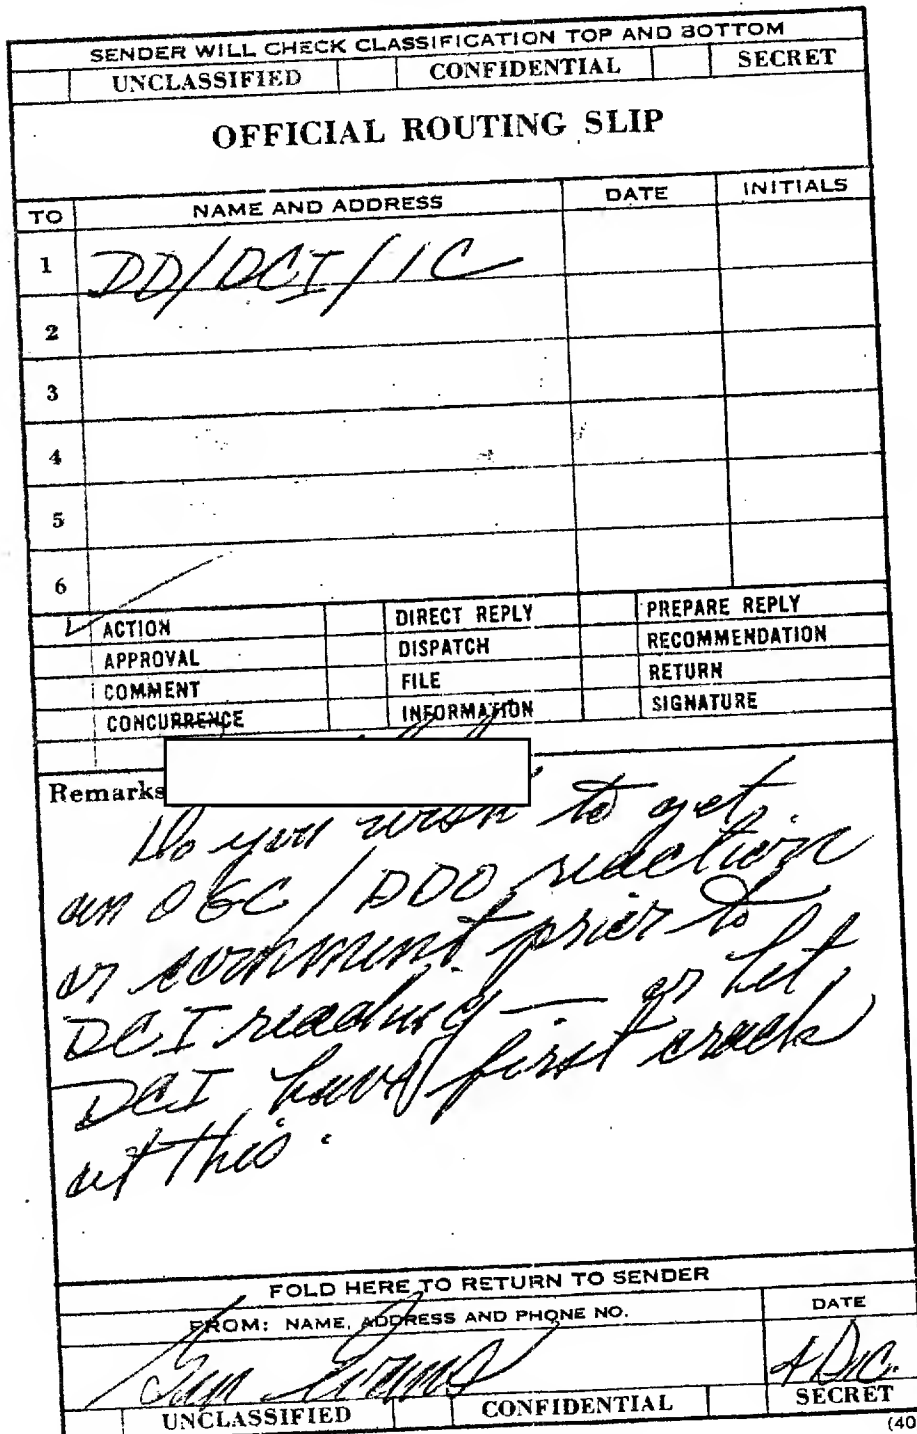 SENDER WILL CHECK CLASSIFICATION TOP AND BOTTOM
UNCLASSIFIED CONFIDENTIAL SECRET
OFFICIAL ROUTING SLIP
TO NAME AND ADDRESS DATE INITIALS
1 DD/DCI/IC
2
3
4
5
6
✓ ACTION DIRECT REPLY PREPARE REPLY
APPROVAL DISPATCH RECOMMENDATION
COMMENT FILE RETURN
CONCURRENCE INFORMATION SIGNATURE
Remarks
Do you wish to get
an OGC/DDO reaction
or comment prior to
DCI reading — or let
DCI have first crack
at this.
FOLD HERE TO RETURN TO SENDER
FROM: NAME, ADDRESS AND PHONE NO. DATE
Evans 4 Dec.
UNCLASSIFIED CONFIDENTIAL SECRET
(40